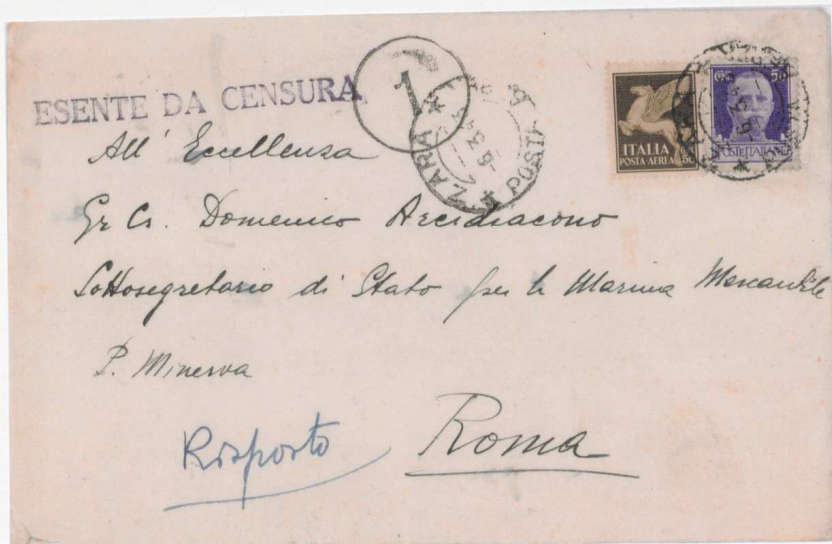 ESENTE DA CENSURA
1
ZARA * POSTA *
ITALIA
POSTA-AEREA
50
POSTE ITALIANE
All' Eccellenza
Gr Cr. Domenico Arcidiacono
Sottosegretario di Stato per la Marina Mercantile
P. Minerva
Risposto
Roma